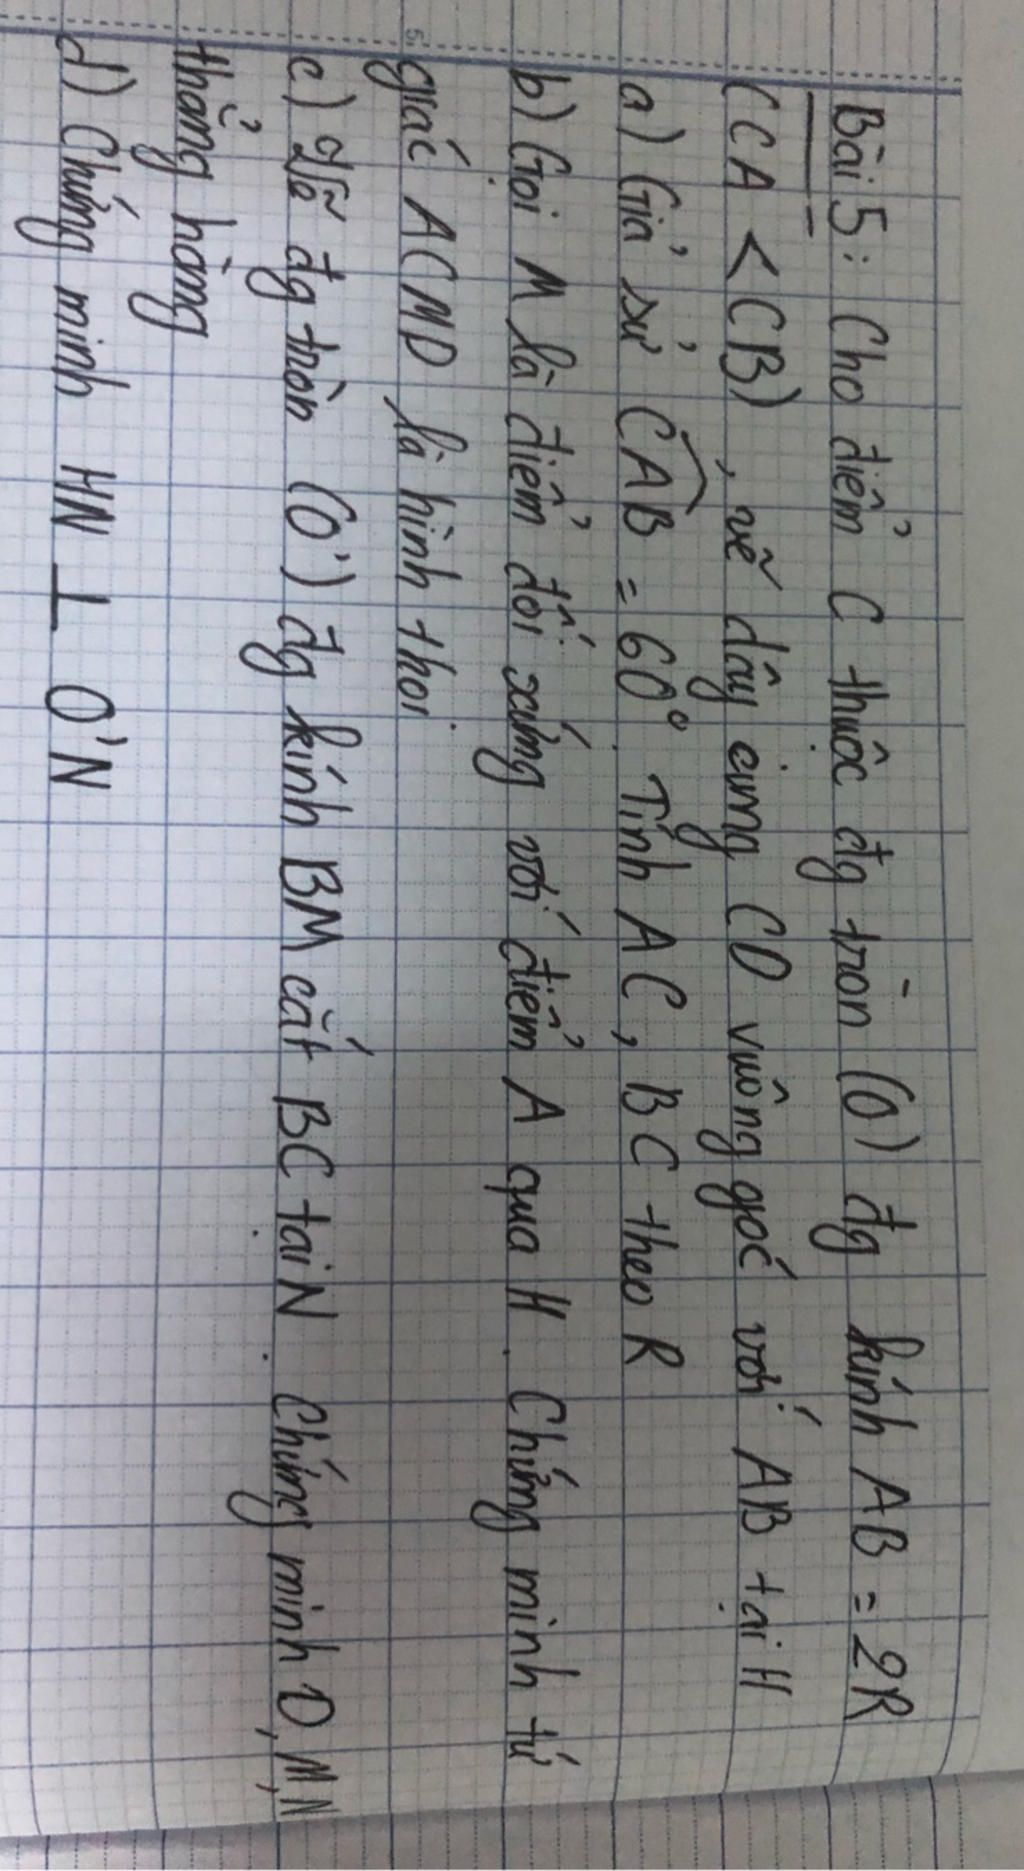 Bài 5: Cho điểm C thuộc đg tròn (O) đg kính AB = 2R
(CA < CB), vẽ dây cung CD vuông góc với AB tại H
a) Giả sử CAB = 60°. Tính AC, BC theo R
b) Gọi M là điểm đối xứng với điểm A qua H. Chứng minh tứ
giác ACMD là hình thoi.
c) Vẽ đg tròn (O') đg kính BM cắt BC tại N. Chứng minh D, M, N
thẳng hàng
d) Chứng minh HN ⊥ O'N